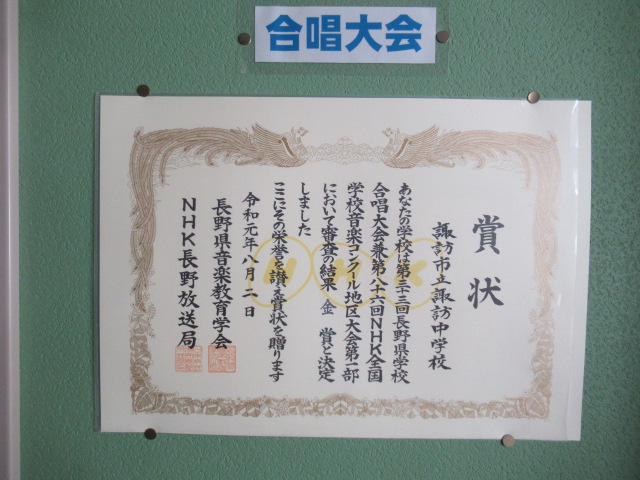 合唱大会
賞状
諏訪市立諏訪中学校
あなたの学校は第三十三回長野県学校
合唱大会兼第八十六回NHK全国
学校音楽コンクール地区大会第一部
において審査の結果 金 賞と決定
しました
ここにその栄誉を讃え賞状を贈ります
令和元年八月二日
長野県音楽教育学会
NHK長野放送局